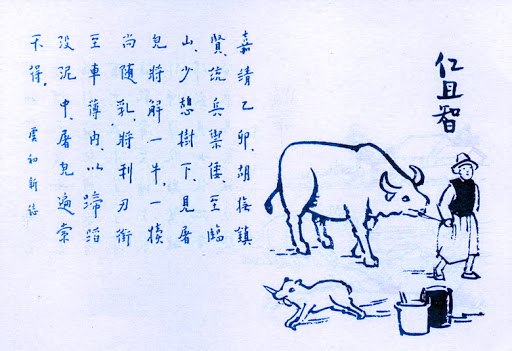 仁且智
嘉靖乙卯、胡梅鎮
賢統兵禦倭、至臨
山、少憩樹下、見屠
兒將解一牛、一犢
尚隨乳、將利刃銜
至車薄內、以蹄蹈
没泥中、屠兒遍索
不得。
虞初新誌